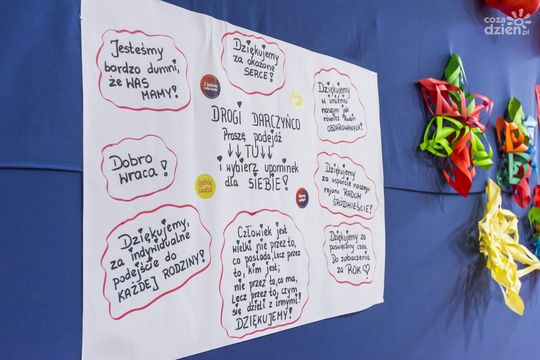 Jesteśmy
bardzo dumni,
że WAS
MAMY!
Dziękujemy
za okazane
SERCE!
Dziękujemy
w imieniu
naszym jak
również
OBDAROWANYCH!
DROGI DARCZYŃCO
Proszę podejdź
TU
i wybierz upominek
dla SIEBIE!
Dobro
wraca!
Dziękujemy
za wsparcie naszego
rejonu RADOM
ŚRÓDMIEŚCIE!
Dziękujemy,
za indywidualne
podejście do
KAŻDEJ RODZINY!
Człowiek jest
wielki nie przez to,
co posiada, lecz przez
to, kim jest;
nie przez to, co ma,
lecz przez to, czym
się dzieli z innymi!
DZIĘKUJEMY!
Dziękujemy za
poświęcony czas.
Do zobaczenia
za ROK
coza
dzień.pl